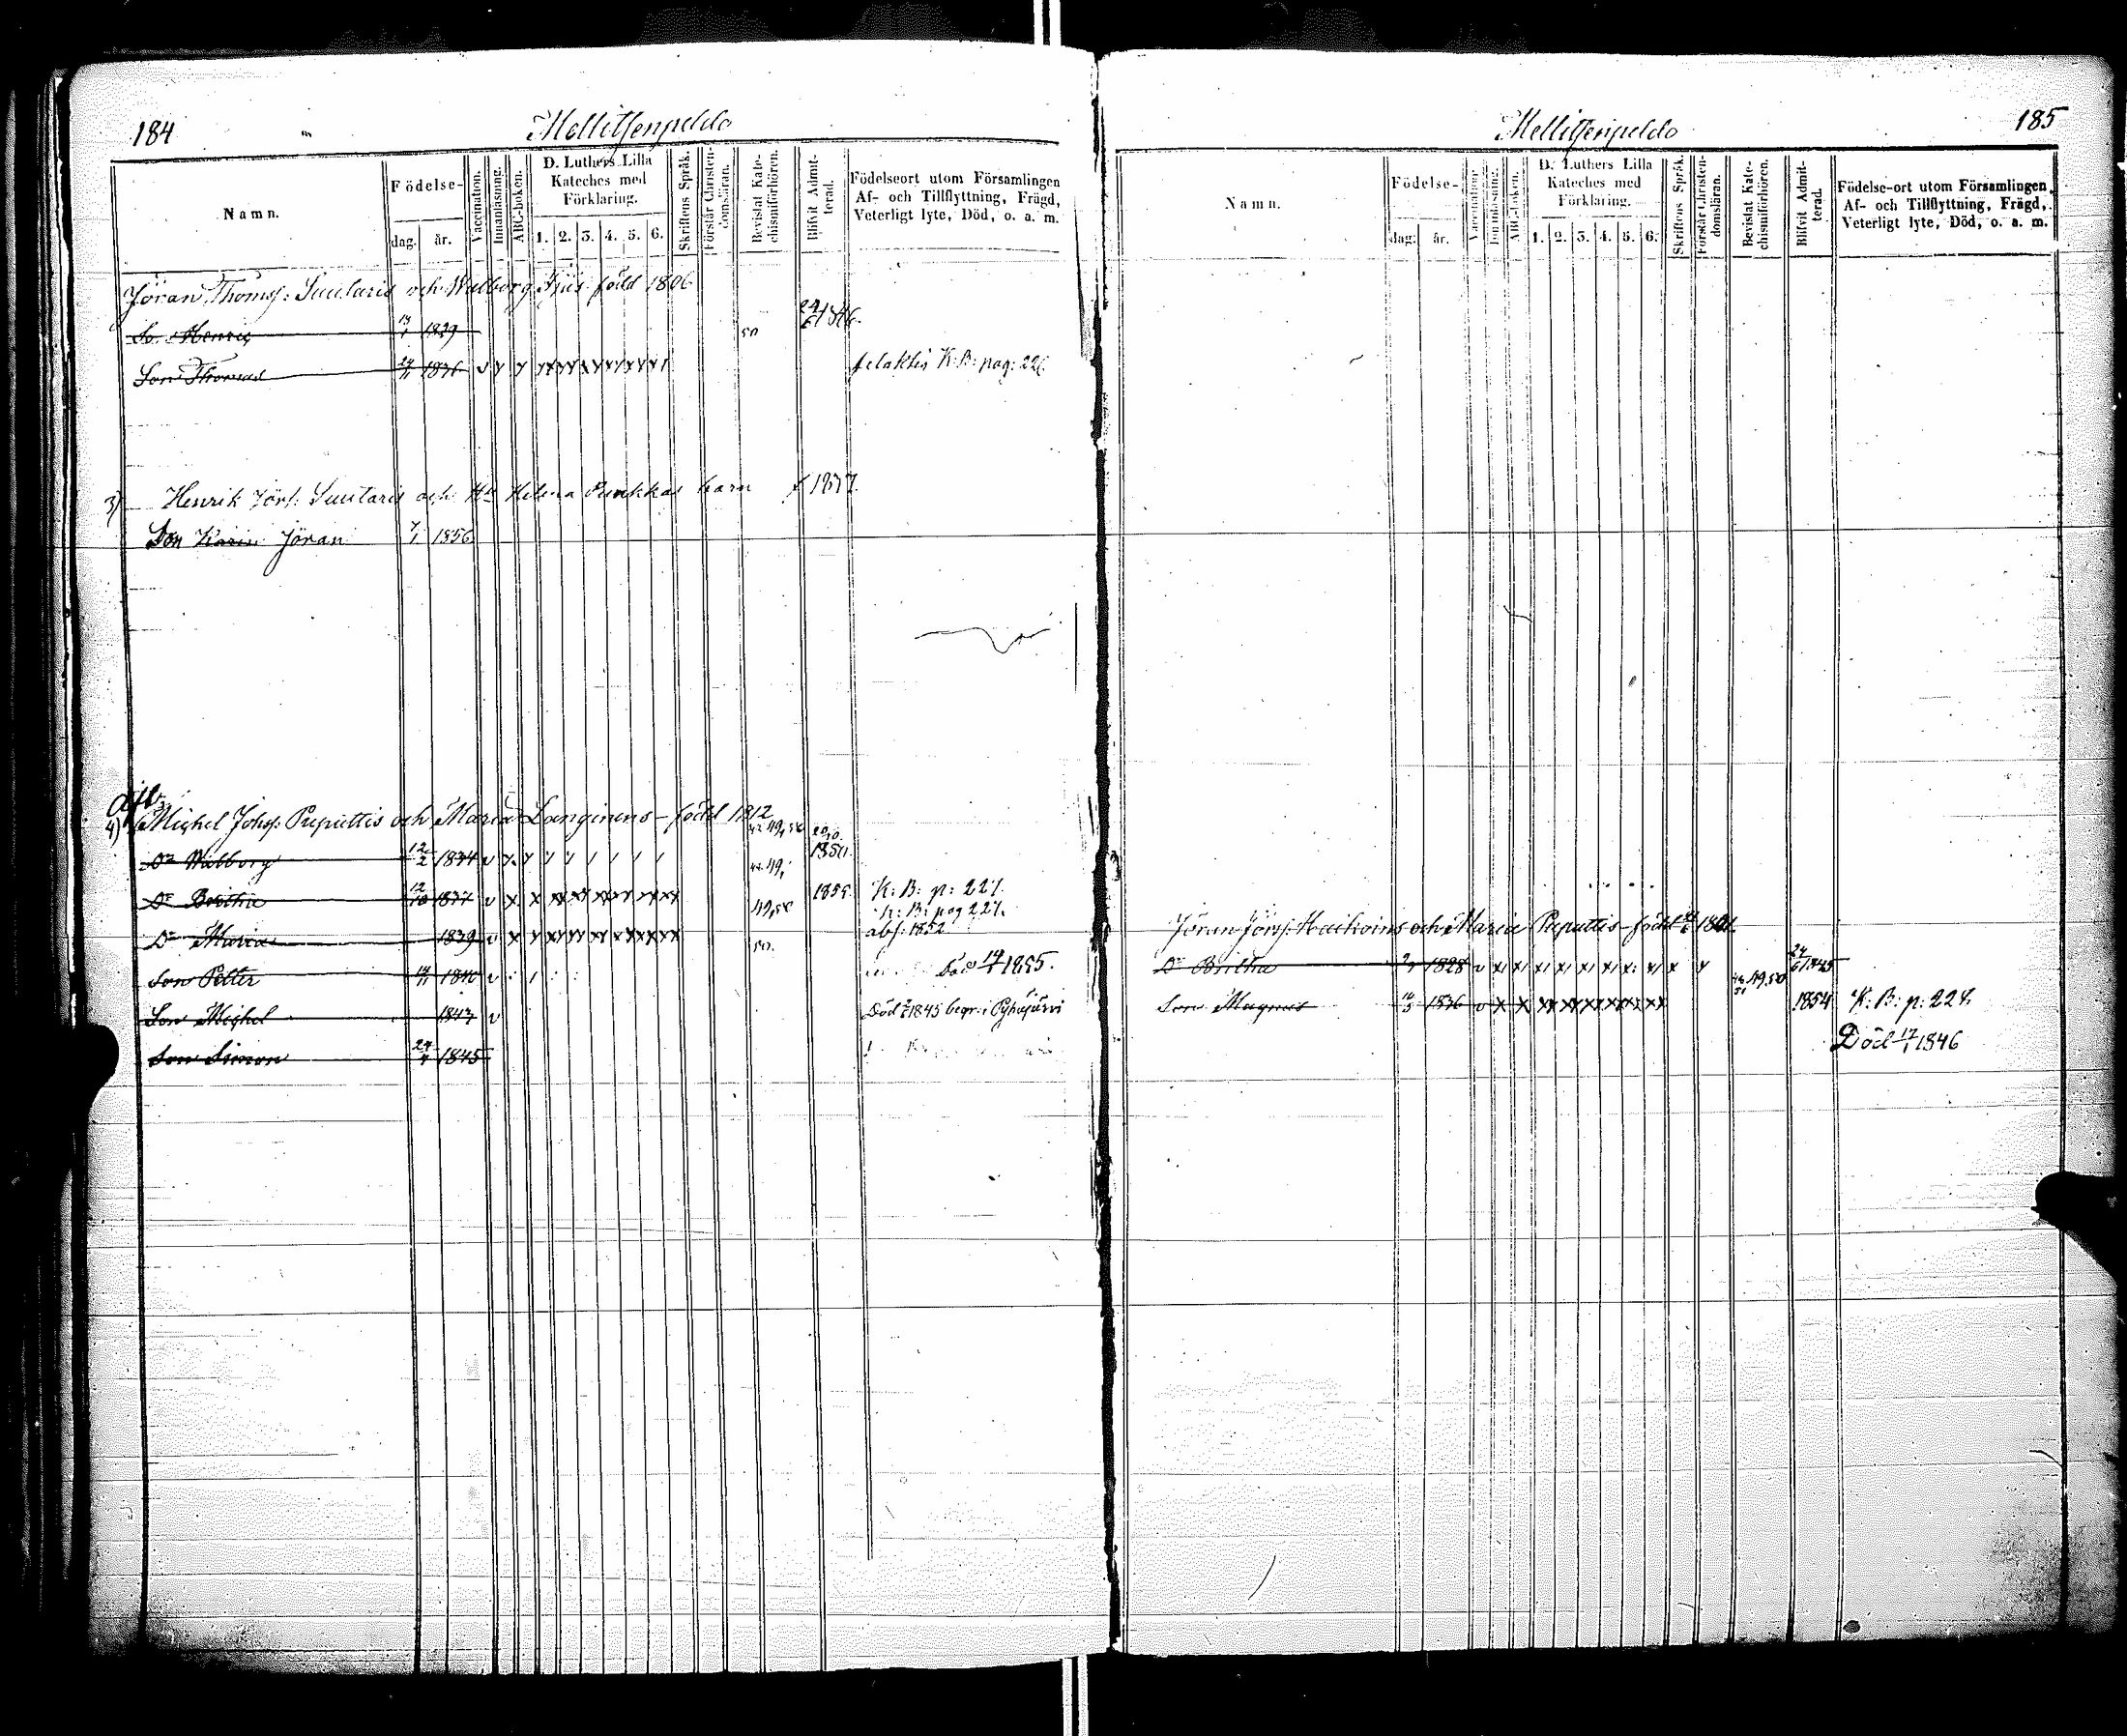 184
Mellitsenpeldo
Namn.
Födelse-
dag. år.
Vaccination.
Innanläsning.
ABC-boken.
D. Luthers Lilla
Kateches med
Förklaring.
1. 2. 3. 4. 5. 6.
Skriftens Språk.
Förstår Christen-
domsläran.
Bevistat Kate-
chismiförhören.
Blifvit Admit-
terad.
Födelseort utom Församlingen
Af- och Tillflyttning, Frägd,
Veterligt lyte, Död, o. a. m.
Jöran Thomss: Suutaris och Walborg född 1806
So. Henric 13/1 1829 50 24/6 1846.
Son Thomas 24/11 1836 K: B: pag: 226
3) Henrik Jörs: Suutaris och Helena Punkkas barn f 1837.
Son Jöran 7/1 1856
4) Michel Johss: Puputtis och Maria Langinens - född 1812
Dr Walborg 12/2 1834 49, 50 1850.
Dr Britha 12/10 1837 49, 1855. K: B: p: 227.
Dr Maria 1839 49,50 K: B: pag 227.
abs: 1852
Son Petter 14/11 1840 50. Död 14/1 1855.
Son Michel 1843
Död 1845 begr: i Pyhäjärvi
Son Simon 24/4 1845
185
Mellitsenpeldo
Namn.
Födelse-
dag. år.
Vaccination.
Innanläsning.
ABC-boken.
D. Luthers Lilla
Kateches med
Förklaring.
1. 2. 3. 4. 5. 6.
Skriftens Språk.
Förstår Christen-
domsläran.
Bevistat Kate-
chismiförhören.
Blifvit Admit-
terad.
Födelse-ort utom Församlingen
Af- och Tillflyttning, Frägd,
Veterligt lyte, Död, o. a. m.
Jöran Jörss: och Maria Puputtis - född 1801.
Dr Britha 1828 24/6 1845
Son Magnus 1836 49,50 1854 K: B: p: 227.
Död 17/1 1846